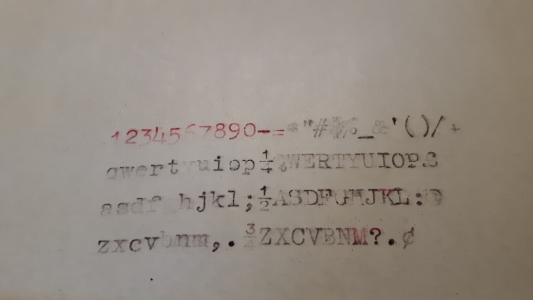 1234567890-=*"#$%_&'()/+
qwertyuiop¼QWERTYUIOP
asdfghjkl;½ASDFGHJKL:@
zxcvbnm,.¾ZXCVBNM?.¢